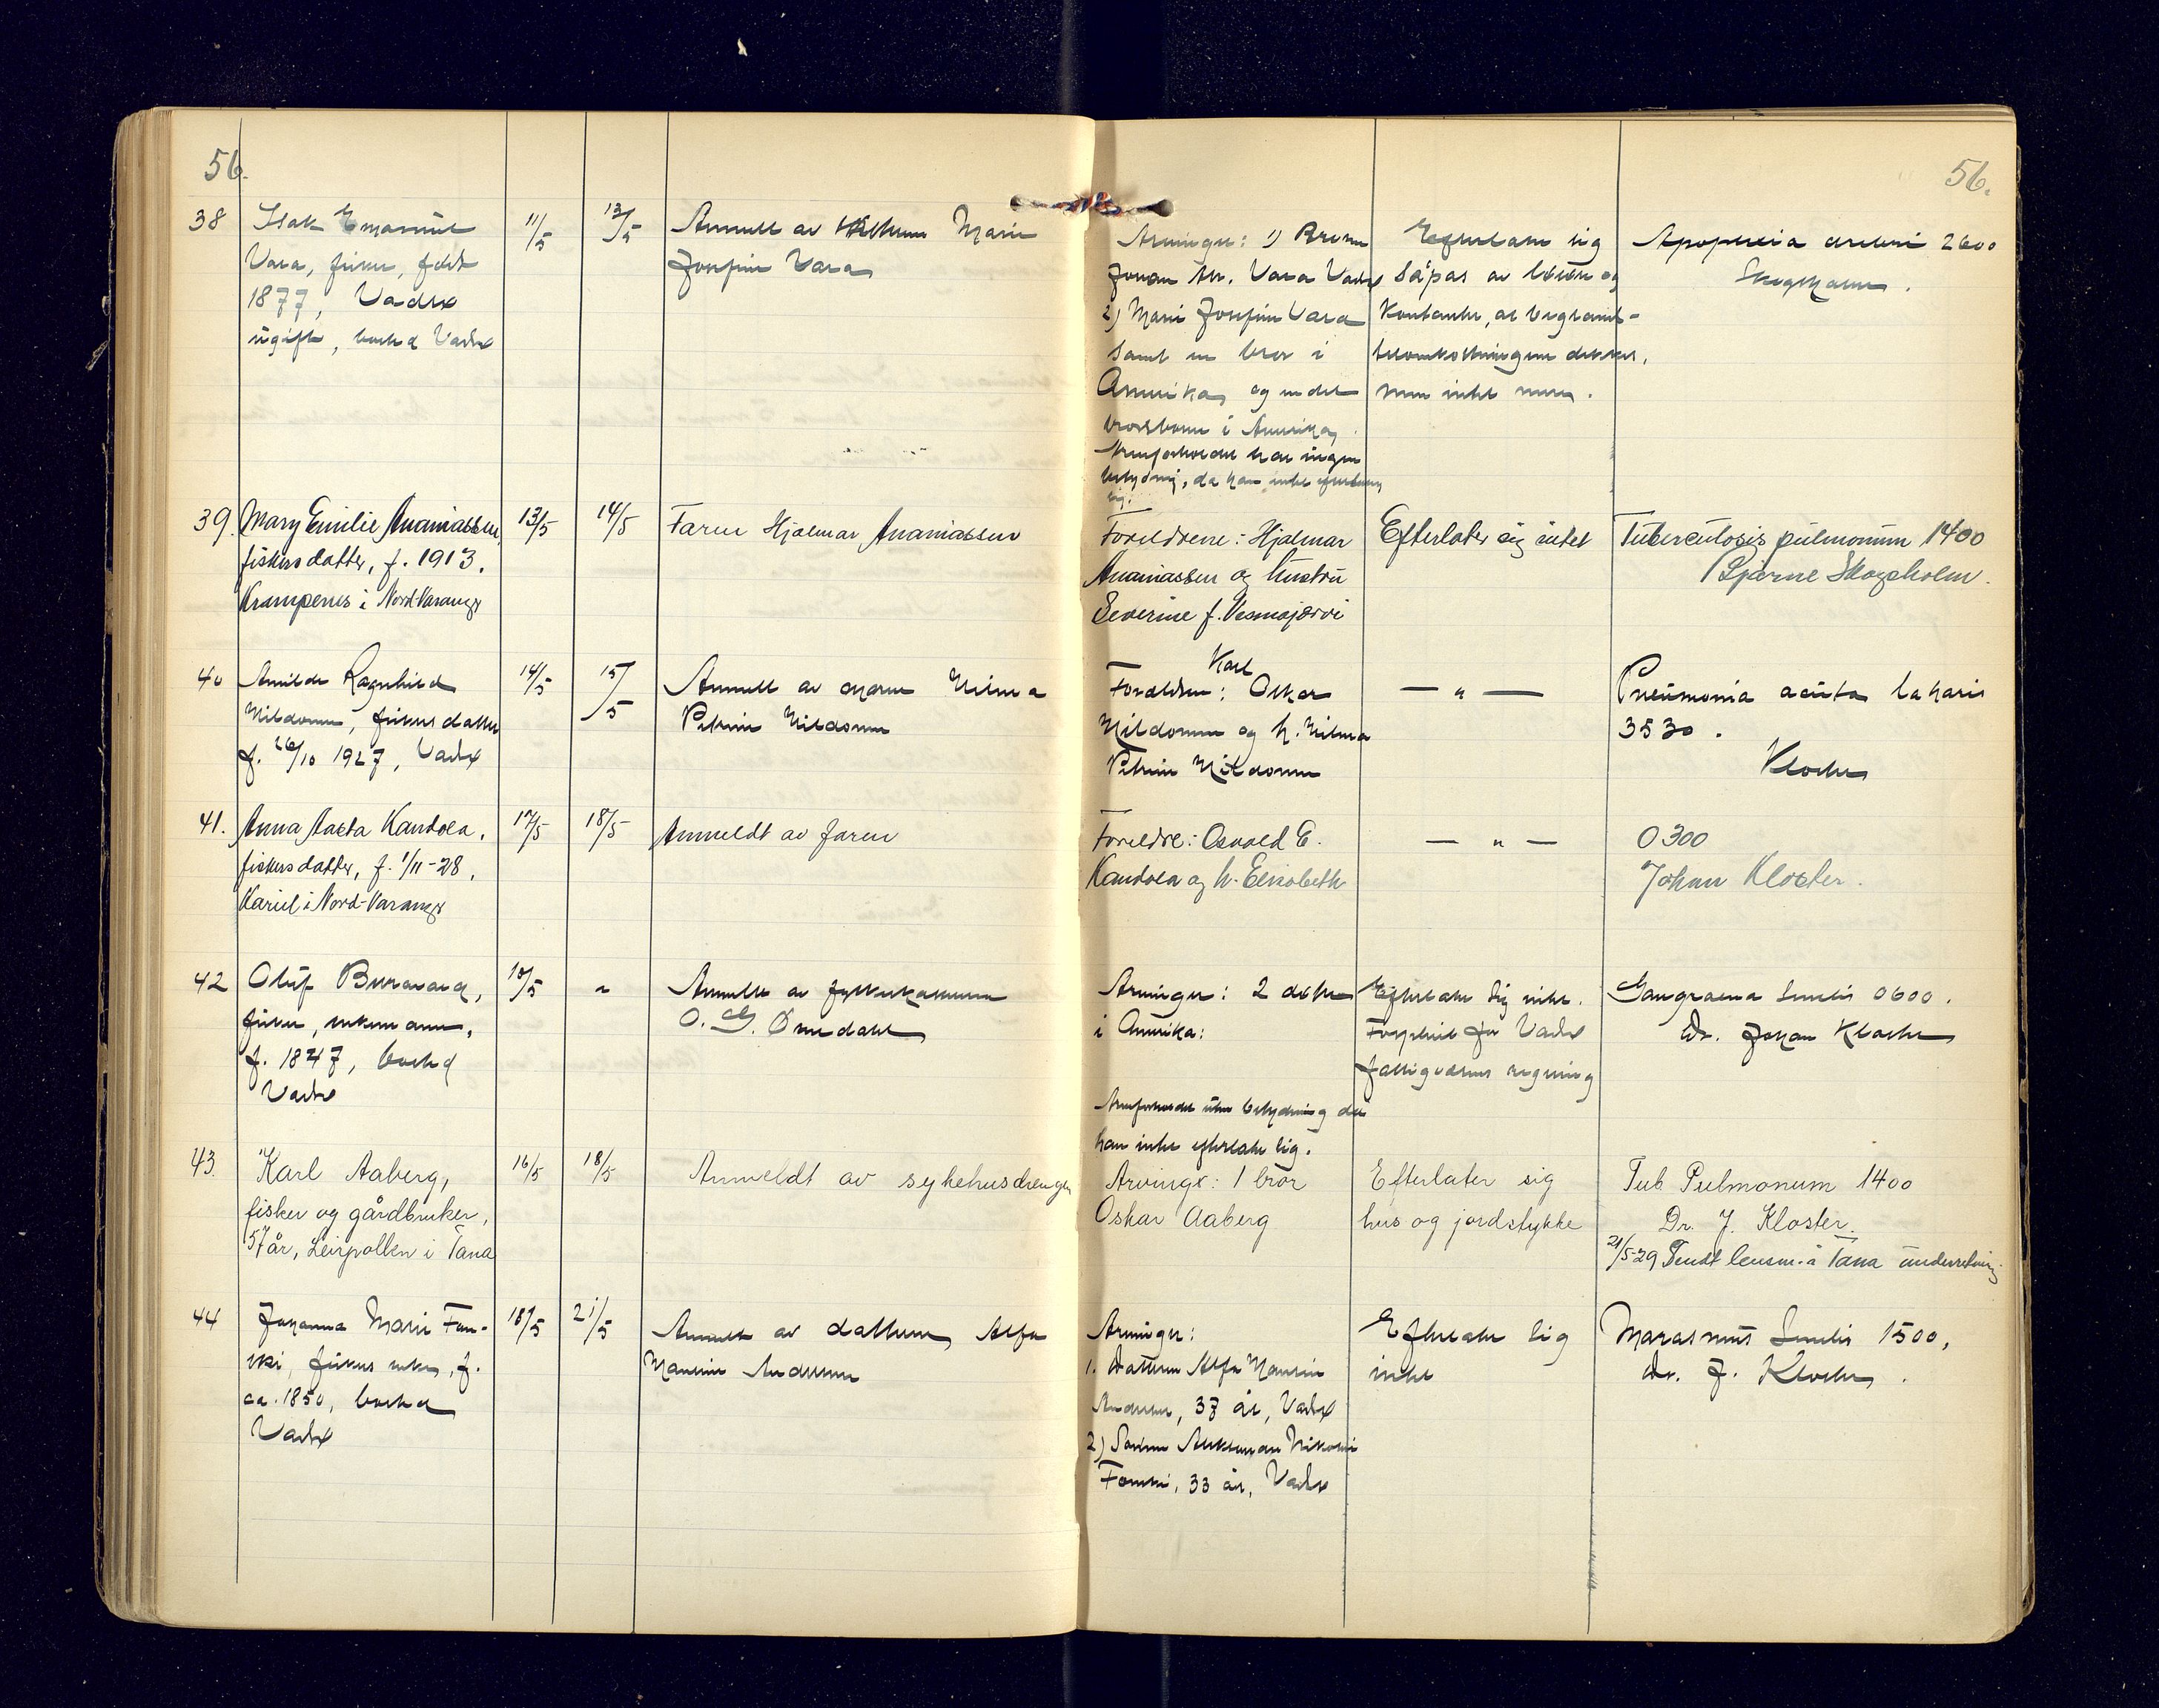 56.
56.
38
Isak Emanuel
Vara, fisker, født
1877, Vadsø
ugift, bosted Vadsø
11/5
13/5
Anmeldt av Marie
Josefine Vara
Arvinger: 1) Broren
Johan Vara Vadsø
2) Marie Josefine Vara
samt en bror i
Amerika, og en del
brorsbarn i Amerika,
har ingen
betydning, da han intet efterlater
sig.
Efterlater sig
såpas av løsøre og
kontanter, at begravel-
sesomkostningene dekkes,
men intet mere.
Apoplexia cerebri 2600
Skogsholm.
39.
Mary Emilie Ananiassen,
fiskersdatter, f. 1913.
Krampenes i Nord-Varanger
13/5
14/5
Faren Hjalmar Ananiassen
Foreldrene: Hjalmar
Ananiassen og hustru
Severine f. Vesmajærvi
Efterlater sig intet
Tuberculosis pulmonum 1400
Bjarne Skogsholm.
40
Ragnhild
Nildonen, fiskersdatter
f. 26/10 1927, Vadsø
14/5
15/5
Anmeldt av moren Hilma
Petrine Nildonen
Karl
Foreldre: Oskar
Nildonen og h. Hilma
Petrine Nildonen
— „ —
Pneumonia acuta
3530.
Kloster
41.
Anna Aasta Kandola,
fiskersdatter, f. 1/11-28,
Kariel i Nord-Varanger
17/5
18/5
Anmeldt av faren
Foreldre: Osvald E.
Kandola og h. Elisabeth
— „ —
0300
Johan Kloster.
42
Oluf
fisker, enkemann,
f. 1847, bosted
Vadsø
18/5
„
Anmeldt av
O. Omdahl
Arvinger: 2 døtre
i Amerika:
uten betydning da
han intet efterlater sig.
Efterlater sig intet.
Forpleiet for Vadsø
fattigvesens regning
Gangraena senilis 0600.
Dr. Johan Kloster
43.
Karl Aaberg,
fisker og gårdbruker,
57 år, Leirpollen i Tana
16/5
18/5
Anmeldt av sykehusdrengen
Arvinge: 1 bror
Oskar Aaberg
Efterlater sig
hus og jordstykke
Tub. Pulmonum 1400
Dr. J. Kloster.
21/5-29 Sendt lensm. i Tana underretning
44
Johanna Marie Fan-
ski, fiskers enke, f.
ca. 1850, bosted
Vadsø
18/5
21/5
Anmeldt av datteren Alfa
Andersen
Arvinger:
1. Datteren Alfa
Andersen, 37 år, Vadsø
2) Sønnen Nikolai
33 år, Vadsø
Efterlater sig
intet
Marasmus Senilis 1500,
Dr. J. Kloster.